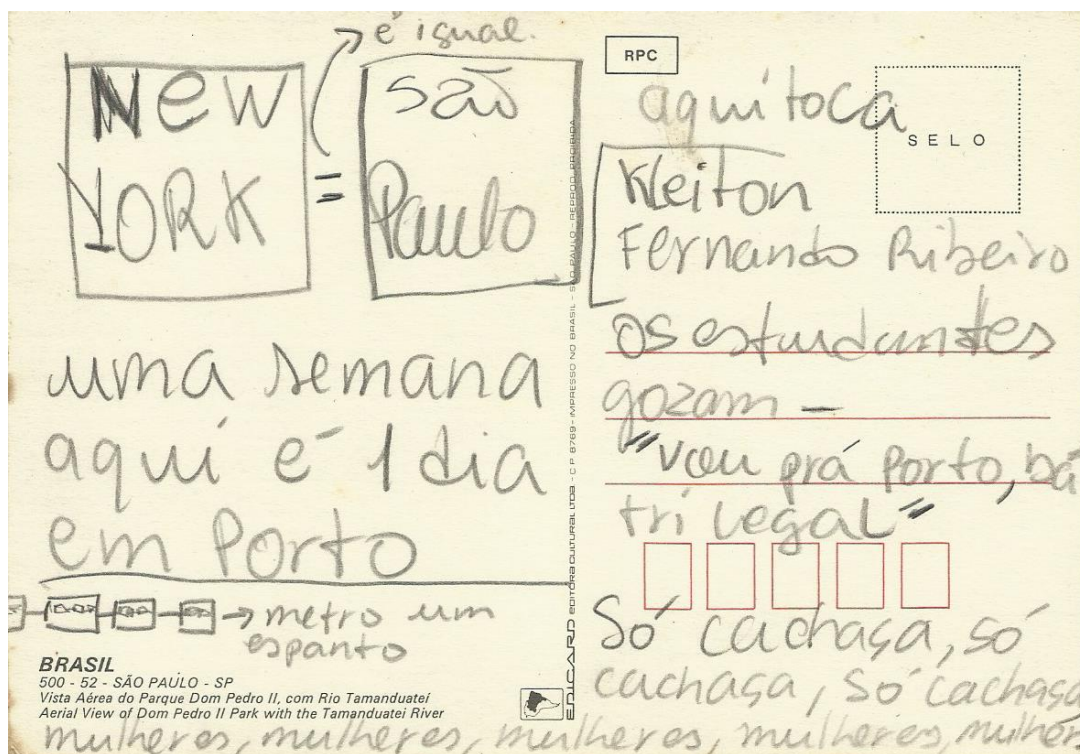 é igual.
NEW
YORK
=
são
Paulo
uma semana
aqui é 1 dia
em Porto
metro um
espanto
BRASIL
500 - 52 - SÃO PAULO - SP
Vista Aérea do Parque Dom Pedro II, com Rio Tamanduateí
Aerial View of Dom Pedro II Park with the Tamanduatei River
EDICARD EDITÔRA CULTURAL LTDA - C P 8769 - IMPRESSO NO BRASIL - SÃO PAULO - REPROD PROIBIDA
RPC
SELO
aqui toca
Kleiton
Fernando Ribeiro
os estudantes
gozam -
"vou prá Porto, bá
tri legal"
Só cachaça, só
cachaça, só cachaça
mulheres, mulheres, mulheres, mulheres, mulher